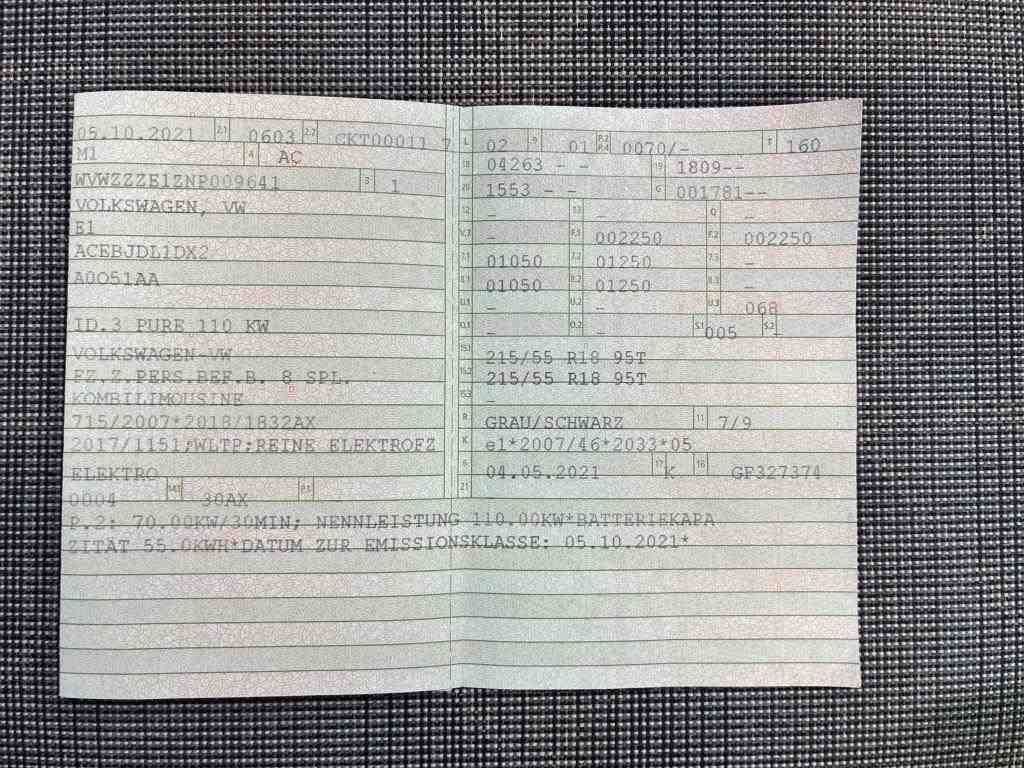 05.10.2021 2.1 0603 2.2 CKT00011 7
M1 4 AC
WVWZZZE1ZNP009641 3 1
VOLKSWAGEN, VW
E1
ACEBJDL1DX2
A0O51AA
ID.3 PURE 110 KW
VOLKSWAGEN-VW
FZ.Z.PERS.BEF.B. 8 SPL.
KOMBILIMOUSINE
715/2007*2018/1832AX
2017/1151;WLTP;REINE ELEKTROFZ
ELEKTRO
0004 14.1 30AX P.1
L 02 9 01 P.2 P.4 0070/- T 160
18 04263 - - 19 1809--
20 1553 - - G 001781--
12 - 13 - Q -
V.7 - F.1 002250 F.2 002250
7.1 01050 7.2 01250 7.3 -
8.1 01050 8.2 01250 8.3 -
U.1 - U.2 - U.3 068
O.1 - O.2 - S.1 005 S.2
15.1 215/55 R18 95T
15.2 215/55 R18 95T
15.3 -
R GRAU/SCHWARZ 11 7/9
K e1*2007/46*2033*05
6 04.05.2021 17 K 16 GP327374
21
P.2: 70.00KW/30MIN; NENNLEISTUNG 110.00KW*BATTERIEKAPA
ZITÄT 55.0KWH*DATUM ZUR EMISSIONSKLASSE: 05.10.2021*